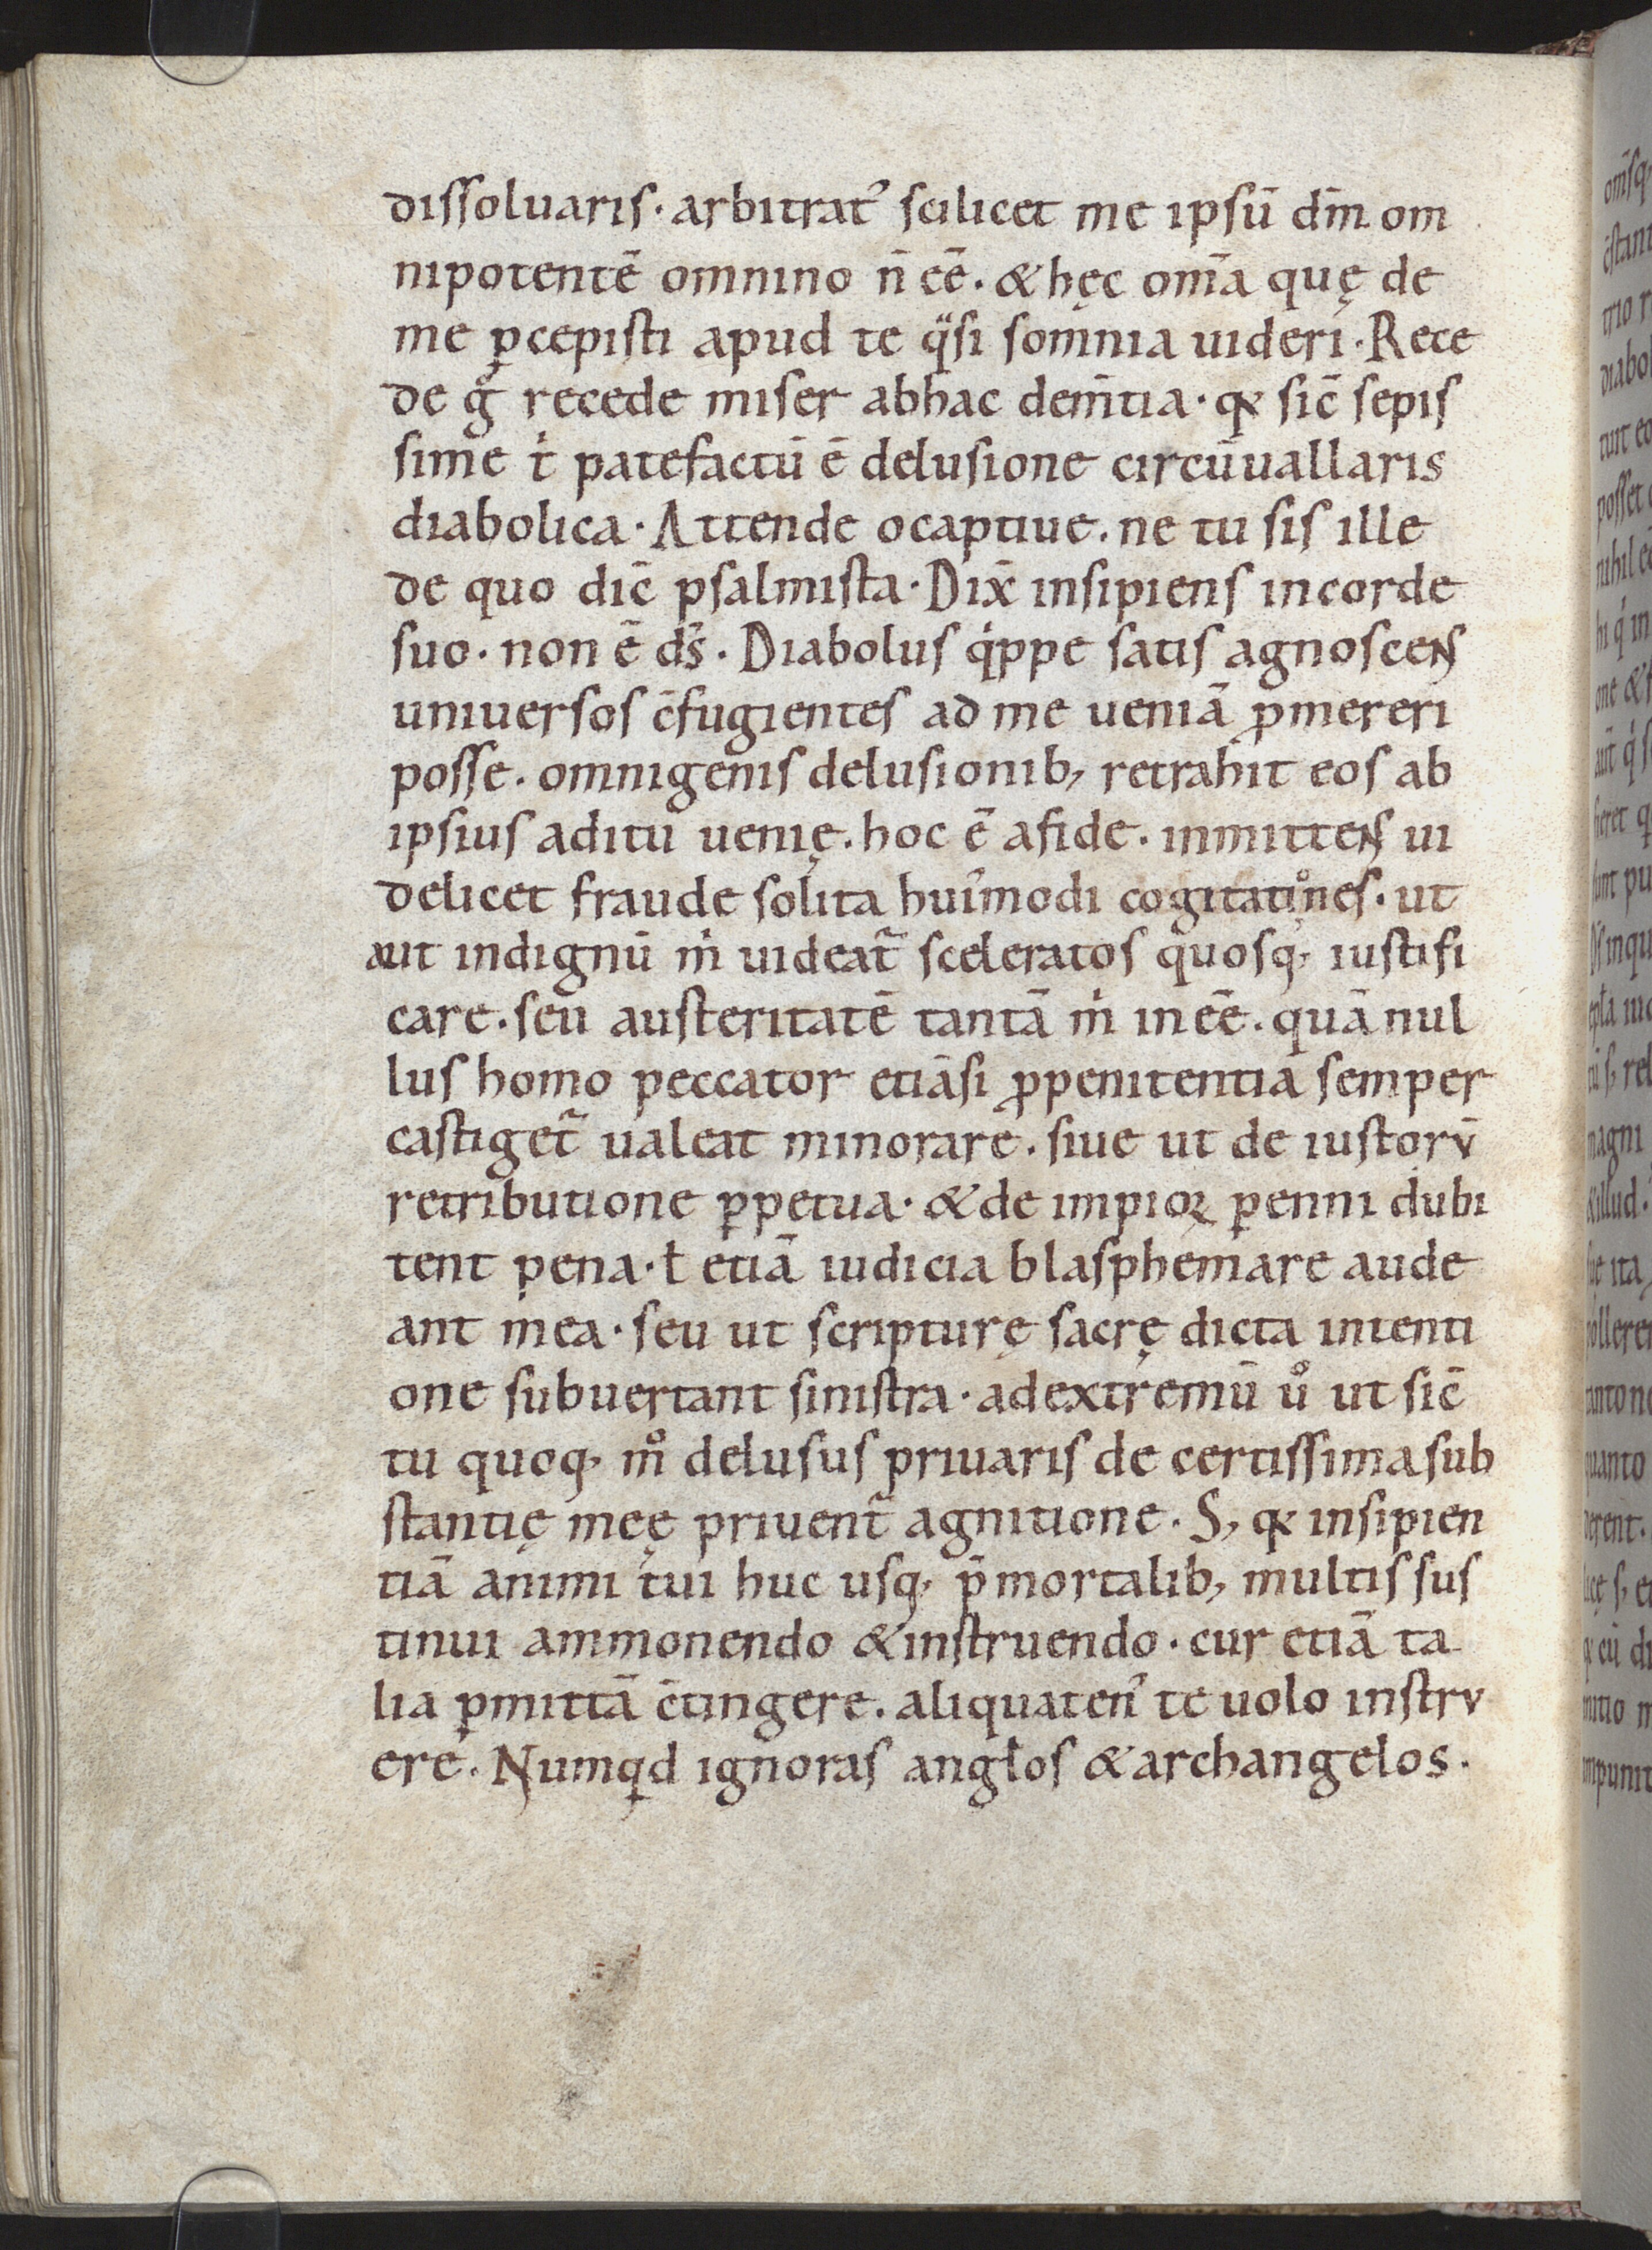 dissoluaris · arbitrat᷒ scilicet me ipsū dm̄ om
nipotentē omnino n̄ eē · & hęc om̄a quę de
me ꝑcepisti apud te qͣsi somnia uideri · Rece
de gͦ recede miser abhac dem̄tia · qꝛ sic̄ sepis
sime tⁱ patefactū ē delusione circūuallaris
diabolica · Attende ocaptiue · ne tu sis ille
de quo dic̄ psalmista · Dix̄ insipiens incorde
suo · non ē ds̄ · Diabolus qⁱppe satis agnoscens
uniuersos c̄fugientes ad me ueniā ꝓmereri
posse · omnigenis delusionib; retrahit eos ab
ipsius aditu uenię · hoc ē afide · inmittens ui
delicet fraude solita huīmodi cogitatiͦnes · ut
aut indignū mⁱ uideat᷒ sceleratos quosq; iustifi
care · seu austeritatē tantā mⁱ in eē · quā nul
lus homo peccator etiāsi ꝓpenitentia semper
castiget᷒ ualeat minorare · siue ut de iustorū
retributione ꝑpetua · & de impioꝝ ꝑenni dubi
tent pena · ł etiā iudicia blasphemare aude
ant mea · seu ut scripturę sacrę dicta intenti
one subuertant sinistra · adextremū uͦ ut sic̄
tu quoq; mͦ delusus priuaris de certissima sub
stantię meę priuent᷒ agnitione · S; qꝛ insipien
tiā animi tui huc usq; p̄ mortalib; multis sus
tinui ammonendo & instruendo · cur etiā ta
lia ꝑmittā c̄tingere · aliquaten᷒ te uolo instru
ere · Numqd ignoras angłos & archangelos ·